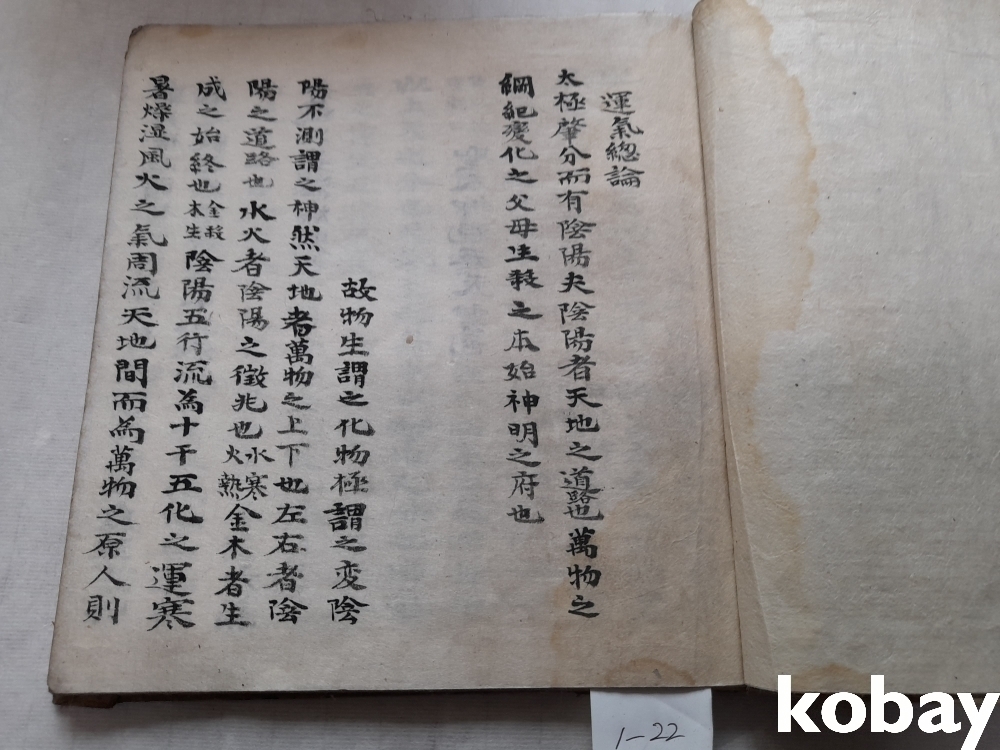 運氣總論
太極肇分而有陰陽夫陰陽者天地之道路也萬物之
綱紀變化之父母生殺之本始神明之府也
故物生謂之化物極謂之变陰
陽不測謂之神然天地者萬物之上下也左右者陰
陽之道路也水火者陰陽之徵兆也水寒火熱金木者生
成之始終也金殺木生陰陽五行流為十干五化之運寒
暑燥湿風火之氣周流天地間而為萬物之原人則
1-22
kobay